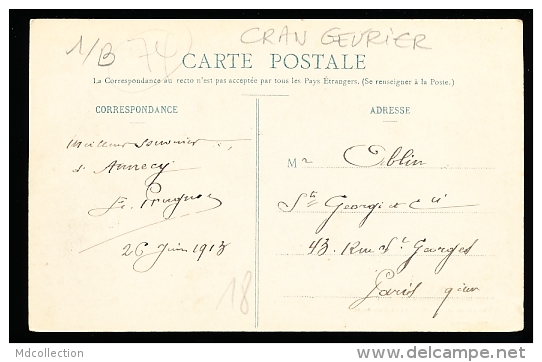 1/B 74 CRAN GEVRIER
CARTE POSTALE
La Correspondance au recto n'est pas acceptée par tous les Pays Étrangers. (Se renseigner à la Poste.)
CORRESPONDANCE
ADRESSE
Meilleur souvenir
d'Annecy
26 Juin 1913
Mr Oblin
Sté Georgi et Cie
43 Rue St Georges
Paris 9ème
18
Mdcollection
http://www.delcampe.net